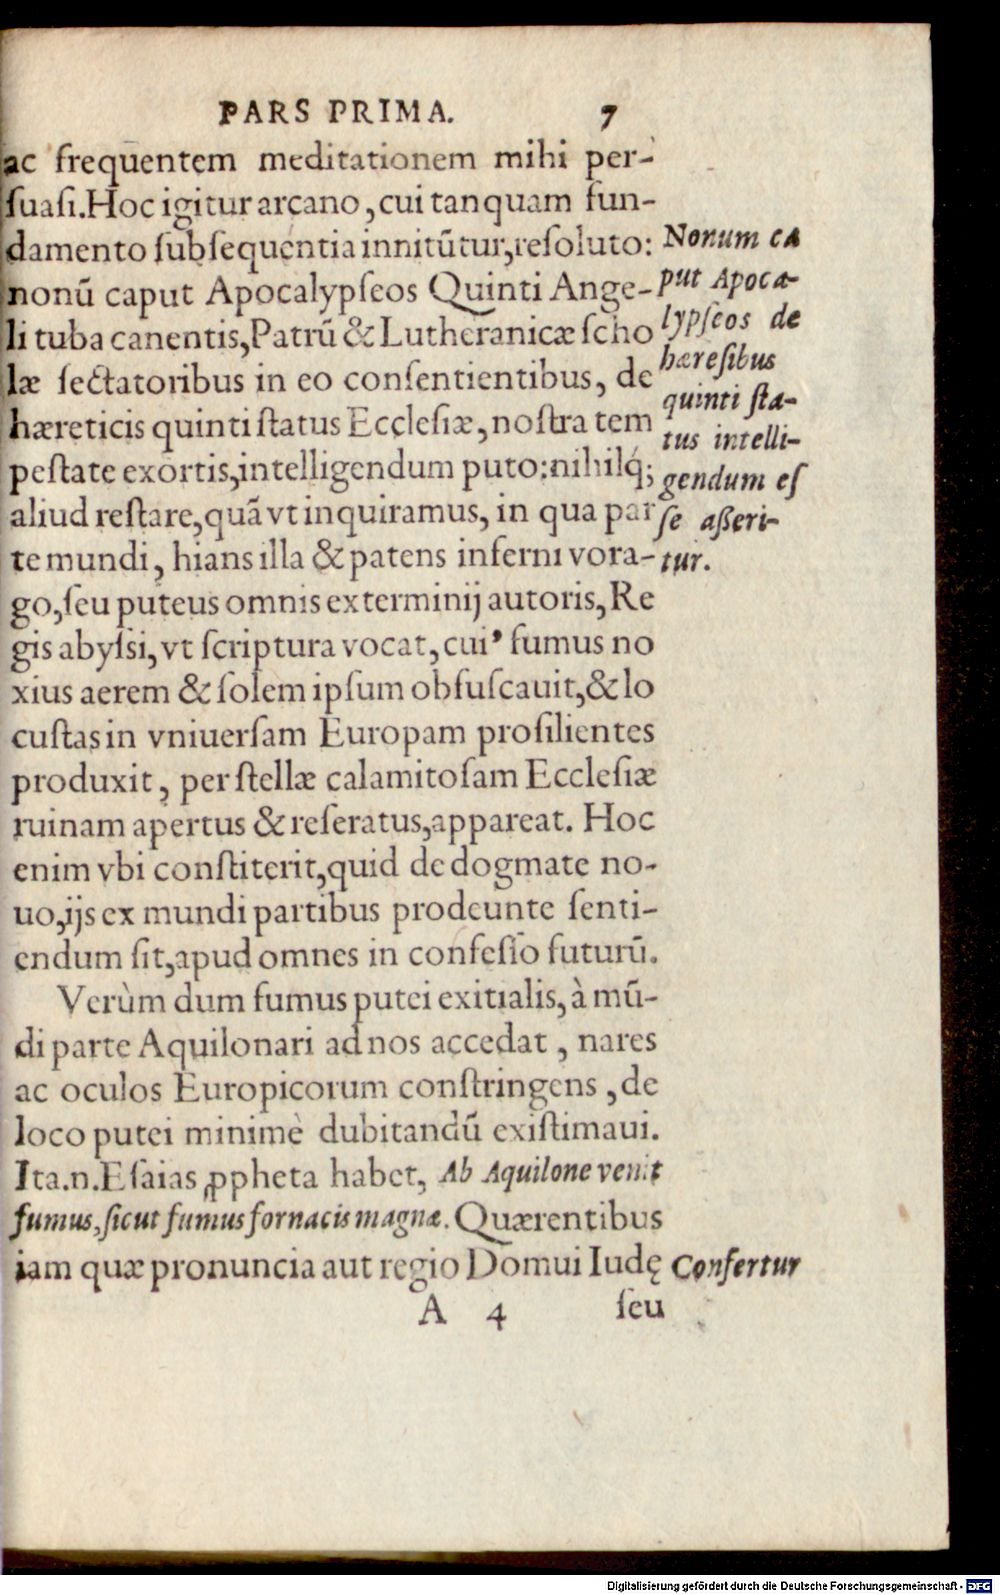 PARS PRIMA. 7
ac frequentem meditationem mihi per-
ſuaſi. Hoc igitur arcano, cui tanquam fun-
damento ſubſequentia innitūtur, reſoluto:
nonū caput Apocalypſeos Quinti Ange-
li tuba canentis, Patrū & Lutheranicæ ſcho
læ ſectatoribus in eo conſentientibus, de
hæreticis quinti ſtatus Eccleſiæ, noſtra tem
peſtate exortis, intelligendum puto: nihilq́;
aliud reſtare, quā vt inquiramus, in qua par
te mundi, hians illa & patens inferni vora-
go, ſeu puteus omnis exterminij autoris, Re
gis abyſsi, vt ſcriptura vocat, cui' fumus no
xius aerem & ſolem ipſum obfuſcauit, & lo
cuſtas in vniuerſam Europam proſilientes
produxit, per ſtellæ calamitoſam Eccleſiæ
ruinam apertus & reſeratus, appareat. Hoc
enim vbi conſtiterit, quid de dogmate no-
uo, ijs ex mundi partibus prodeunte ſenti-
endum ſit, apud omnes in confeſſo futurū.
Verùm dum fumus putei exitialis, à mū-
di parte Aquilonari ad nos accedat, nares
ac oculos Europicorum conſtringens, de
loco putei minimè dubitandū exiſtimaui.
Ita .n. Eſaias ꝓpheta habet, Ab Aquilone venit
fumus, ſicut fumus fornacis magnæ. Quærentibus
iam quæ pronuncia aut regio Domui Iudę
A 4 ſeu
Nonum ca
put Apoca-
lypſeos de
hæreſibus
quinti ſta-
tus intelli-
gendum eſ
ſe aßeri-
tur.
Confertur
Digitalisierung gefördert durch die Deutsche Forschungsgemeinschaft - DFG